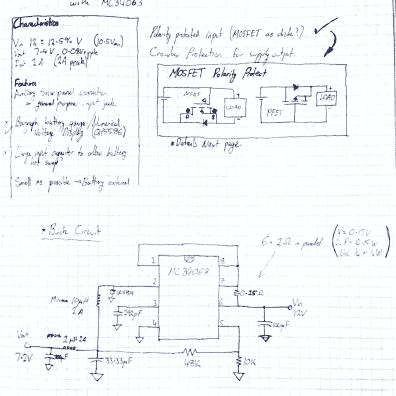 with MC34063
Characteristics
Vin 12 = 12.5% V (10.5Vmin)
Vout 7.4V, 0.08V ripple
Iout 1A (2A peak)
Features
Auxiliary Solar panel connection
or general purpose input jack.
Bargraph battery gauge/Numerical
Voltage Display
Large input capacitor to allow battery
hot swap?
Small as possible → Battery external
Polarity protected input (MOSFET as diode?)
Crowbar Protection for supply output.
MOSFET Polarity Protect
NFET
LOAD
PFET
LOAD
* Details Next page.
* Buck Circuit
6 = 2Ω in parallel
MC34063
1
2
3
4
5
6
7
8
0.25Ω
Vin
12V
1A
Vout
7.2V
33.33µF
48K
10K